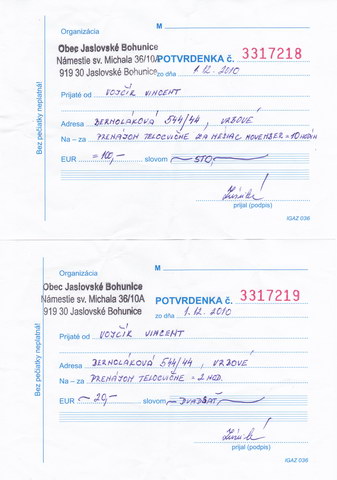 M
Organizácia
Obec Jaslovské Bohunice
Námestie sv. Michala 36/10A
POTVRDENKA č. 3317218
919 30 Jaslovské Bohunice
zo dňa 1.12.2010
Prijaté od VOJČÍK VINCENT
Adresa BERNOLÁKOVÁ 544/44, VRBOVÉ
Na – za PRENÁJOM TELOCVIČNE ZA MESIAC NOVEMBER = 10 HODÍN
EUR = 100,- slovom STO,
prijal (podpis)
IGAZ 036
Bez pečiatky neplatná!
M
Organizácia
Obec Jaslovské Bohunice
Námestie sv. Michala 36/10A
POTVRDENKA č. 3317219
919 30 Jaslovské Bohunice
zo dňa 1.12.2010
Prijaté od VOJČÍK VINCENT
Adresa BERNOLÁKOVÁ 544/44, VRBOVÉ
Na – za PRENÁJOM TELOCVIČNE = 2 HOD.
EUR 20,- slovom DVADSAŤ,
prijal (podpis)
IGAZ 036
Bez pečiatky neplatná!